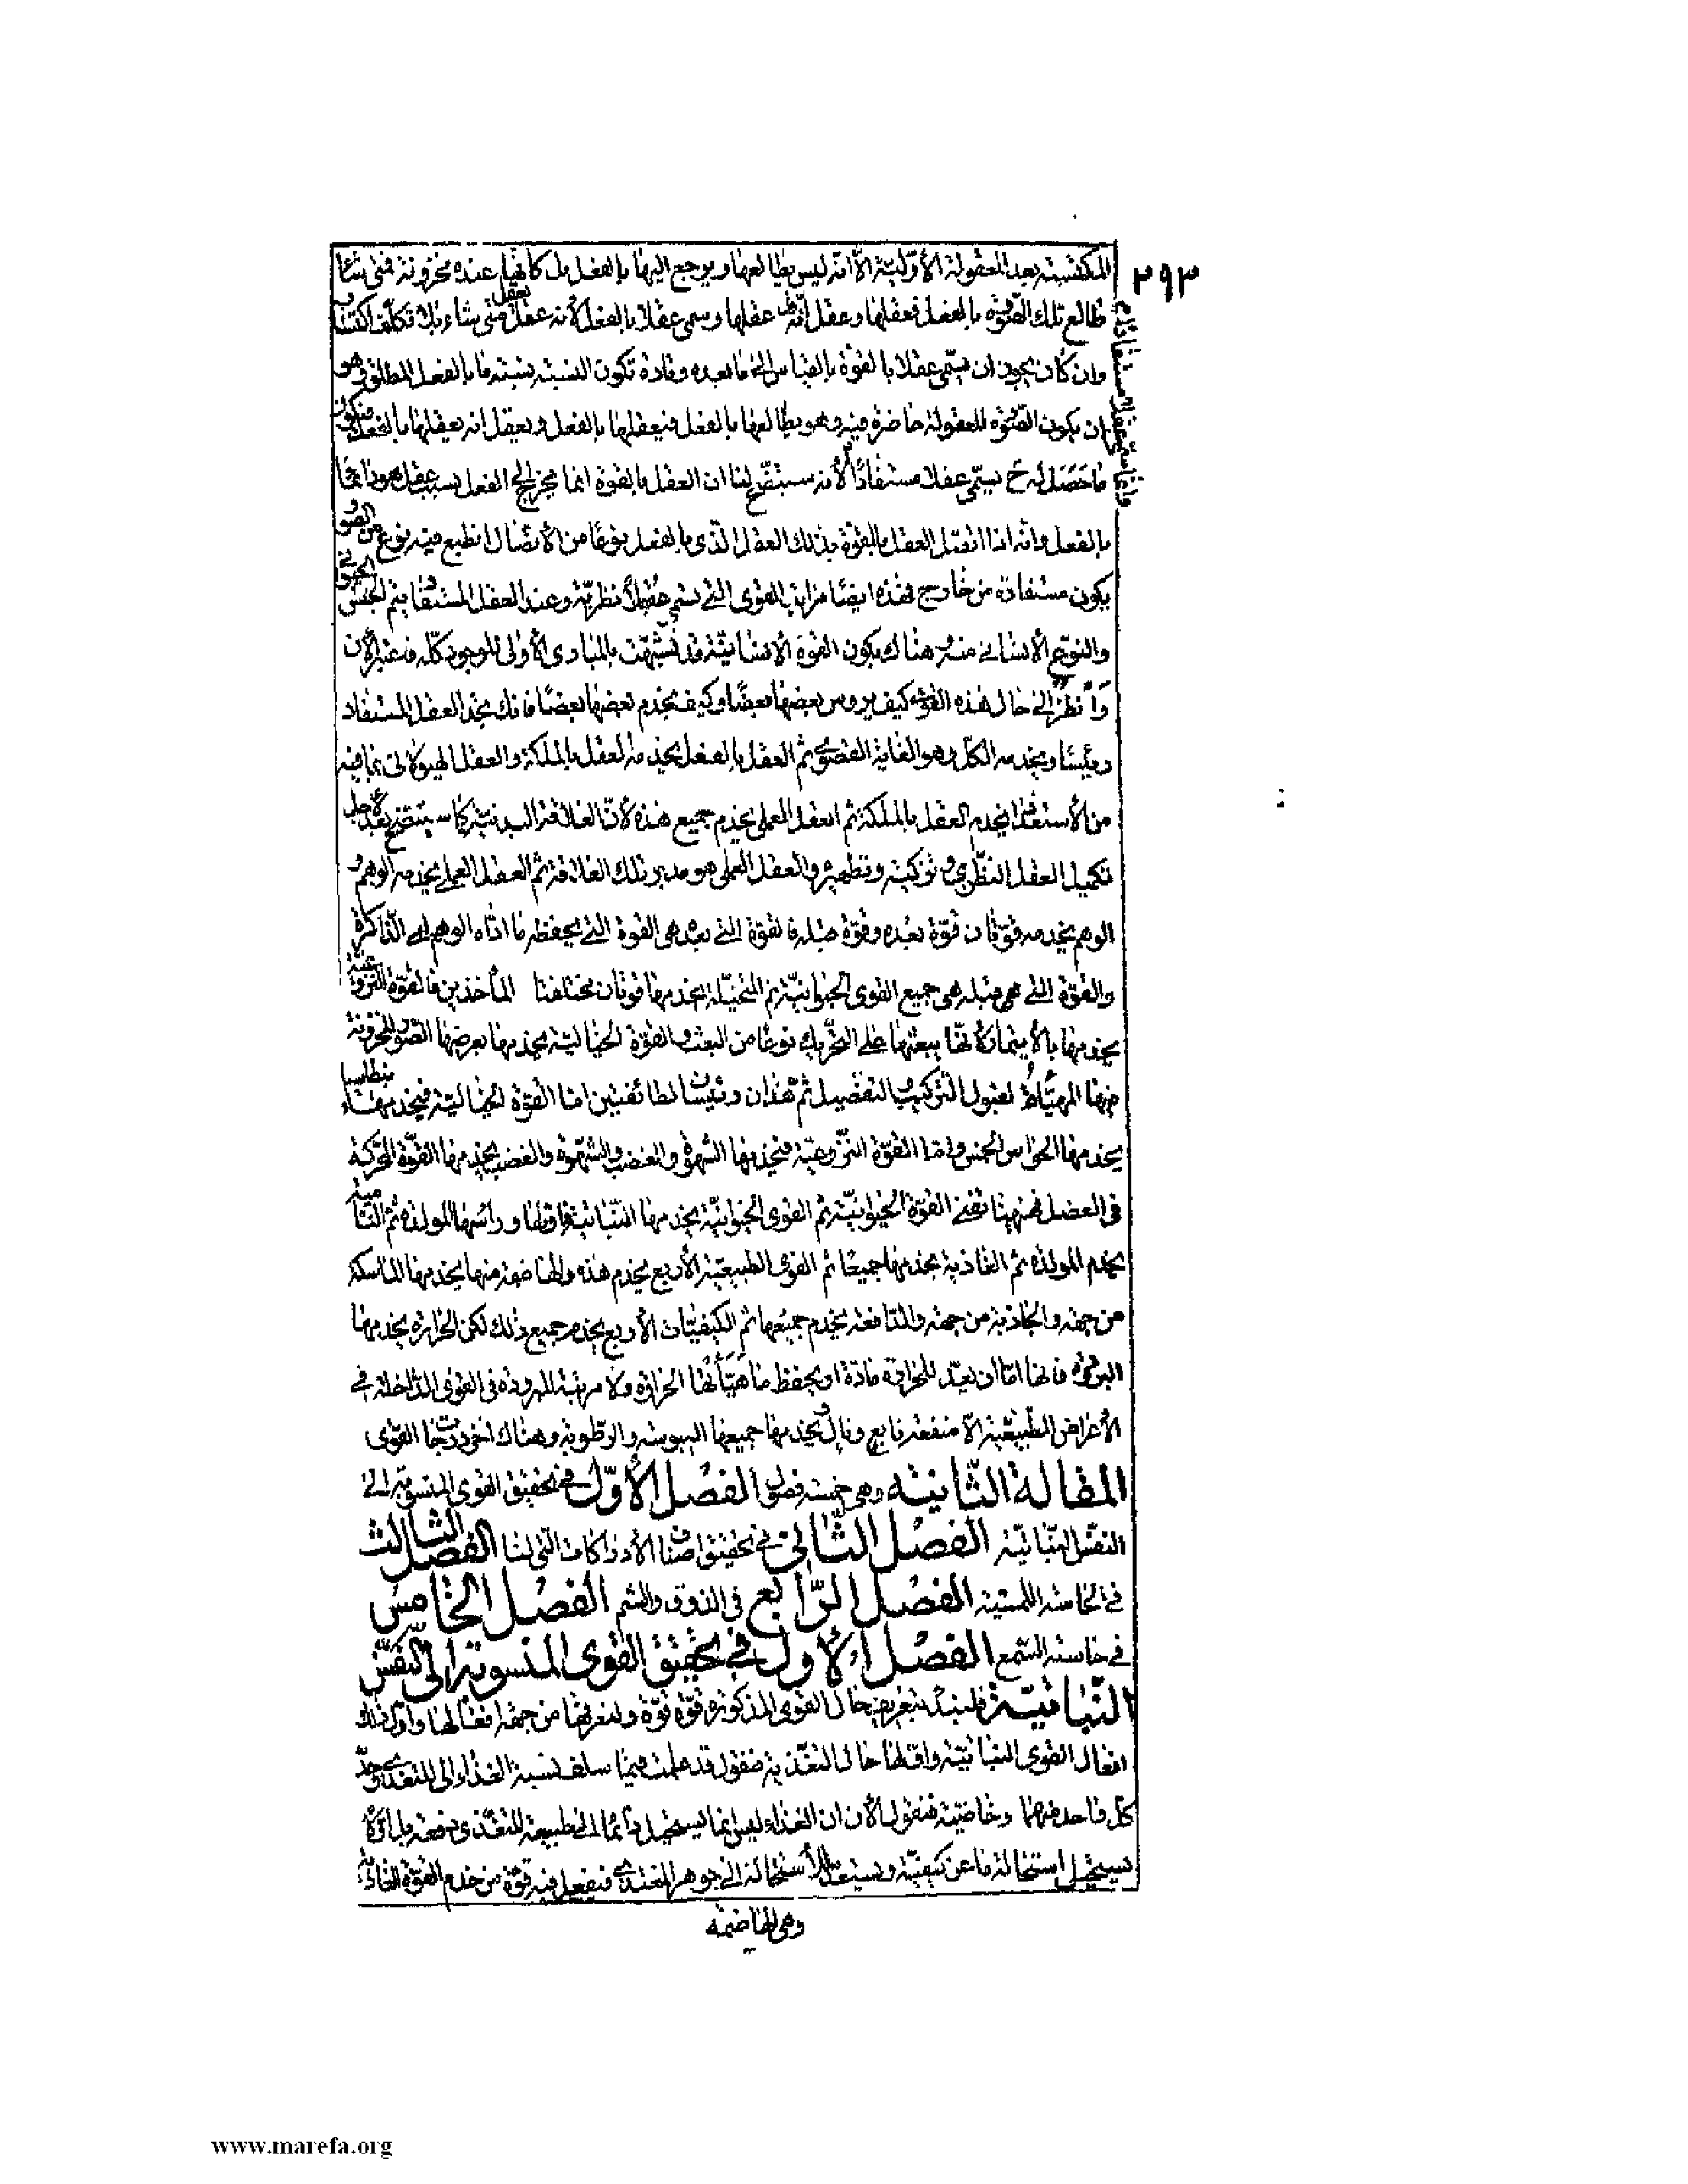 ٢٩٣
المكتسبة بعد المعقولة الأولية الا انه ليس يطالعها ويرجع اليها بالفعل بل كانها عنده مخزونة فمتى شاء
طالع تلك الصورة بالفعل فعقلها وعقل انه عقلها وسمى عقلا بالفعل لأنه عقل يعقل متى شاء بلا تكلف اكتساب
وان كان يجوز ان يسمى عقلا بالقوة بالقياس الى ما بعده وتارة تكون النسبة نسبة ما بالفعل المطلق وهو
ان يكون الصورة المعقولة حاضرة فيه وهو يطالعها بالفعل فيعقلها بالفعل ويعقل انه يعقلها بالفعل فيكون
ما حصل له ح يسمى عقلا مستفادا لأنه سيتضح لنا ان العقل بالقوة انما يخرج الى الفعل بسبب عقل هو دائما
بالفعل وانه اذا اتصل العقل بالقوة بذلك العقل الذى بالفعل نوعا من الأتصال انطبع فيه نوع من الصور
يكون مستفادة من خارج فهذه ايضا مراتب القوى التى تسمى عقولا نظرية وعند العقل المستفاد يتم الجنس الحيوانى
والنوع الأنسانى منه وهناك يكون القوة الأنسانية قد تشبهت بالمبادى الأولى للوجود كله فاعتبر الأن
وانظر الى حال هذه القوى كيف يروس بعضها بعضا وكيف يخدم بعضها بعضا فانك تجد العقل المستفاد
رئيسا ويخدمه الكل وهو الغاية القصوى ثم العقل بالفعل يخدمه العقل بالملكة والعقل الهيولانى بما فيه
من الأستعداد يخدم العقل بالملكة ثم العقل العملى يخدم جميع هذه لأن العلاقة البدنية كما سيتضح بعد لأجل
تكميل العقل النظرى وتزكيته وتطهيره والعقل العملى هو مدبر تلك العلاقة ثم العقل العملى يخدمه الوهم و
الوهم يخدمه قوتان قوة بعده وقوة قبله فالقوة التى بعده هى القوة التى يحفظ ما اداه الوهم اى الذاكرة
والقوة التى هى قبله هى جميع القوى الحيوانية ثم المتخيلة يخدمها قوتان مختلفتا المأخذين فالقوة النزوعية
يخدمها بالأيتمار لأنها يبعثها على التحريك نوعا من البعث والقوة الخيالية يخدمها بعرضها الصور المخزونة
فيها المهيأة لقبول التركيب والتفصيل ثم هذان رئيسان لطائفتين اما القوة الخيالية فيخدمها بنطاسيا
يخدمها الحواس الخمس واما القوة النزوعية فيخدمها الشهوة والغضب والشهوة والغضب يخدمها القوة المحركة
فى العضل فههنا تفنى القوة الحيوانية ثم القوى الحيوانية يخدمها النباتية واولها ورأسها المولدة ثم النامية
يخدم المولدة ثم الغاذية يخدمها جميعا ثم القوى الطبيعية الأربع يخدم هذه والهاضمة منها يخدمها الماسكة
من جهة والجاذبة من جهة والدافعة يخدم جميعها ثم الكيفيات الأربع يخدم جميع ذلك لكن الحرارة يخدمها
البرودة فانها اما ان يعد للحرارة مادة او يحفظ ما هيأتها الحرارة ولا مرتبة للبرودة فى القوى الداخلة فى
الأعراض الطبيعية الا منفعة تابع وتال ويخدمها جميعها اليبوسة والرطوبة وهناك اخر درجات القوى
المقالة الثانية وهى خمسة فصول الفصل الأول فى تحقيق القوى المنسوبة الى
النفس النباتية الفصل الثانى فى تحقيق اصناف الأدراكات التى لنا الفصل الثالث
فى الحاسة اللمسية الفصل الرابع فى الذوق والشم الفصل الخامس
فى حاسة السمع الفصل الأول فى تحقيق القوى المنسوبة الى النفس
النباتية فلنبدأ بتعريف حال القوى المذكورة قوة قوة ولنعرفها من جهة افعالها واول ذلك
افعال القوى النباتية واولها حال التغذية فنقول قد علمت فيما سلف نسبة الغذاء الى المتغذى وحد
كل واحد منهما وخاصيته فنقول الأن ان الغذاء ليس انما يستحيل دائما الى طبيعة المتغذى دفعة بل اولا
يستحيل استحالة ما عن كيفيته ويستعد للأستحالة الى جوهر المغتذى فيفعل فيه قوة من خدم القوة الغاذية
وهى الهاضمة
www.marefa.org